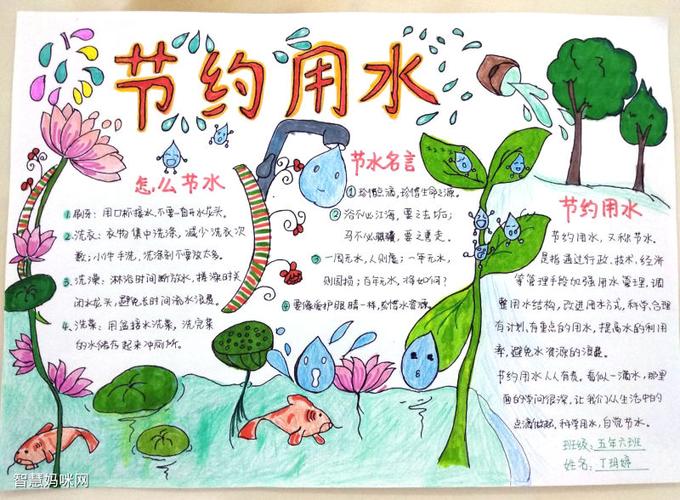 节约用水
怎么节水
1. 刷牙：用口杯接水，不要一直开水龙头。
2. 洗衣：衣物集中洗涤，减少洗衣次
数；小件手洗，洗涤剂不要放太多。
3. 洗澡：淋浴时间断放水，搓澡时关
闭水龙头，避免长时间流水浪费。
4. 洗菜：用盆接水洗菜，洗完菜
的水储存起来冲厕所。
节水名言
① 珍惜点滴，珍惜生命之源。
② 浴不必江海，要之去垢；
马不必骐骥，要之善走。
③ 一周无水，人则危；一年无水，
则国损；百年无水，将如何？
④ 要像爱护眼睛一样，爱惜水资源。
节约用水
节约用水，又称节水。
是指通过行政、技术、经济
等管理手段加强用水管理，调
整用水结构，改进用水方式，科学、合理
有计划、有重点的用水，提高水的利用
率，避免水资源的浪费。
节约用水人人有责。看似一滴水，那里
面的学问很深，让我们从生活中的
点滴做起，科学用水，自觉节水。
班级：五年六班
姓名：丁玥婷
智慧妈咪网